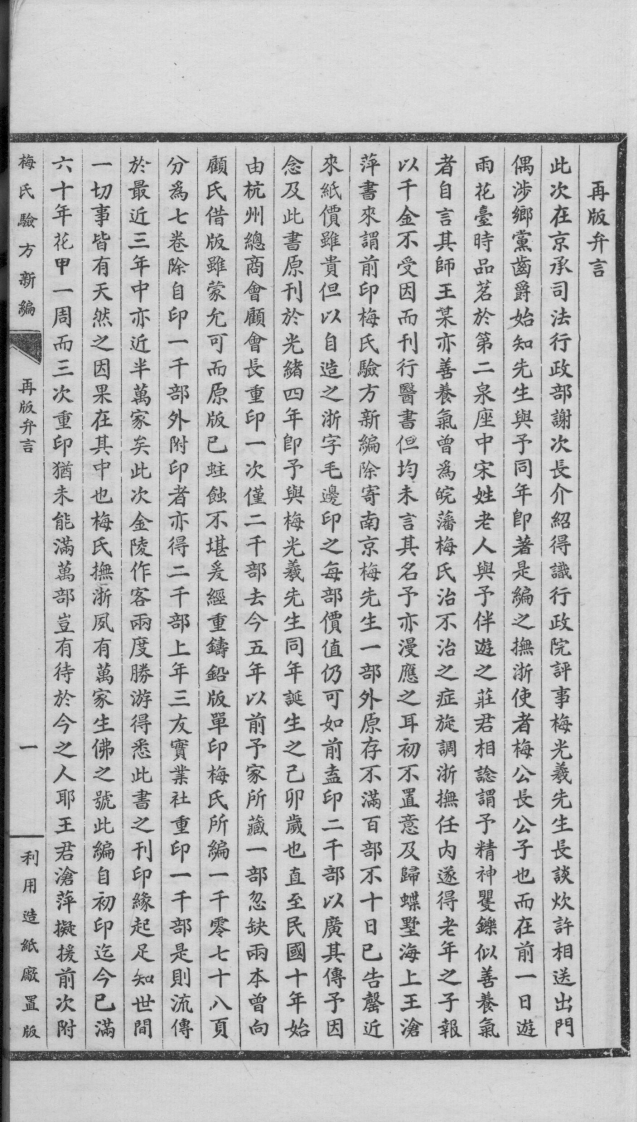 再版弁言
此次在京承司法行政部謝次長介紹得識行政院評事梅光羲先生長談炊許相送出門
偶涉鄉黨齒爵始知先生與予同年卽著是編之撫浙使者梅公長公子也而在前一日遊
雨花臺時品茗於第二泉座中宋姓老人與予伴遊之莊君相諗謂予精神矍鑠似善養氣
者自言其師王某亦善養氣曾為皖藩梅氏治不治之症旋調浙撫任內遂得老年之子報
以千金不受因而刊行醫書但均未言其名予亦漫應之耳初不置意及歸蝶墅海上王滄
萍書來謂前印梅氏驗方新編除寄南京梅先生一部外原存不滿百部不十日已告罄近
來紙價雖貴但以自造之浙字毛邊印之每部價值仍可如前盍印二千部以廣其傳予因
念及此書原刊於光緒四年卽予與梅光羲先生同年誕生之己卯歲也直至民國十年始
由杭州總商會顧會長重印一次僅二千部去今五年以前予家所藏一部忽缺兩本曾向
顧氏借版雖蒙允可而原版已蛀蝕不堪爰經重鑄鉛版單印梅氏所編一千零七十八頁
分為七卷除自印一千部外附印者亦得二千部上年三友實業社重印一千部是則流傳
於最近三年中亦近半萬家矣此次金陵作客兩度勝游得悉此書之刊印緣起足知世間
一切事皆有天然之因果在其中也梅氏撫浙風有萬家生佛之號此編自初印迄今已滿
六十年花甲一周而三次重印猶未能滿萬部豈有待於今之人耶王君滄萍擬援前次附
梅氏驗方新編
再版弁言
一
利用造紙廠置版